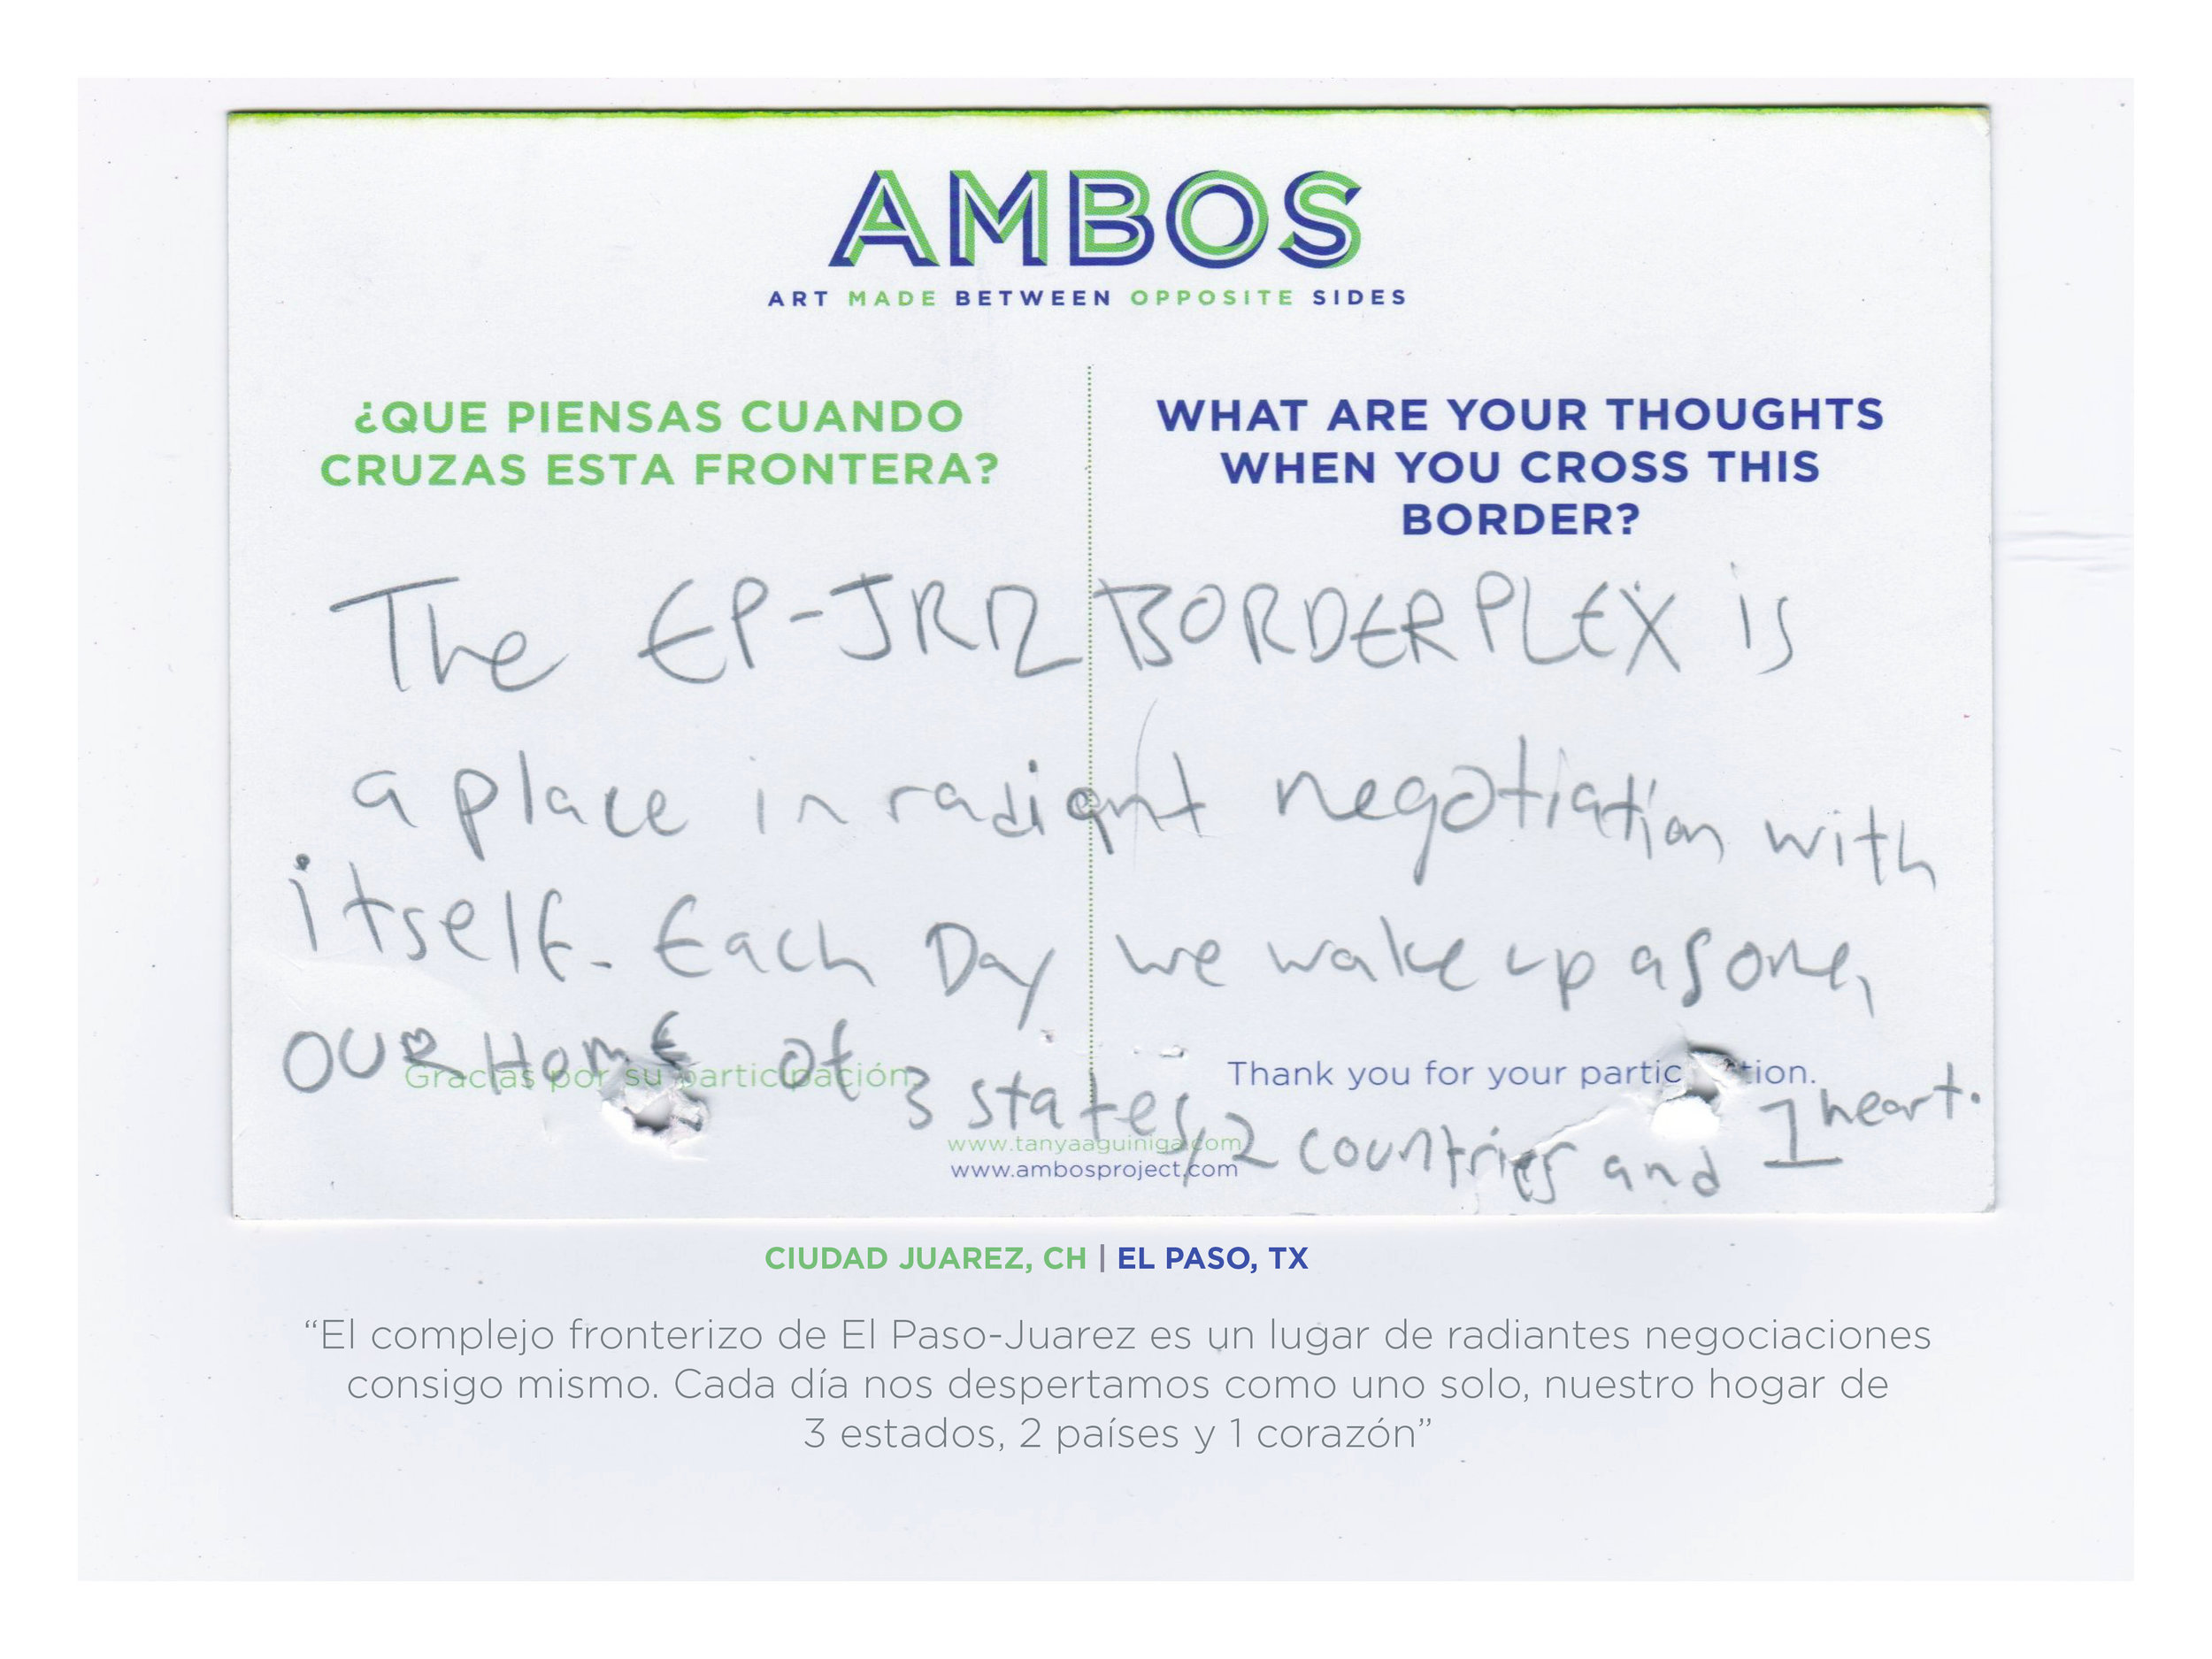 AMBOS
ART MADE BETWEEN OPPOSITE SIDES
¿QUE PIENSAS CUANDO
CRUZAS ESTA FRONTERA?
WHAT ARE YOUR THOUGHTS
WHEN YOU CROSS THIS
BORDER?
The EP-JRZ BORDERPLEX is
a place in radiant negotiation with
itself. Each Day we wake up as one,
OUR HOME of 3 states, 2 countries and 1 heart.
Gracias por su participación.
Thank you for your partic tion.
www.tanyaaguiniga.com
www.ambosproject.com
CIUDAD JUAREZ, CH | EL PASO, TX
“El complejo fronterizo de El Paso-Juarez es un lugar de radiantes negociaciones
consigo mismo. Cada día nos despertamos como uno solo, nuestro hogar de
3 estados, 2 países y 1 corazón”